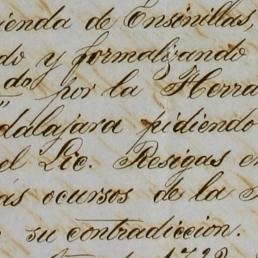 ienda de Ensinillas,
do y formalizando
do por la Herra
dalajara pidiendo
el Lic. Resigas en
ás ocursos de la
su contradiccion.